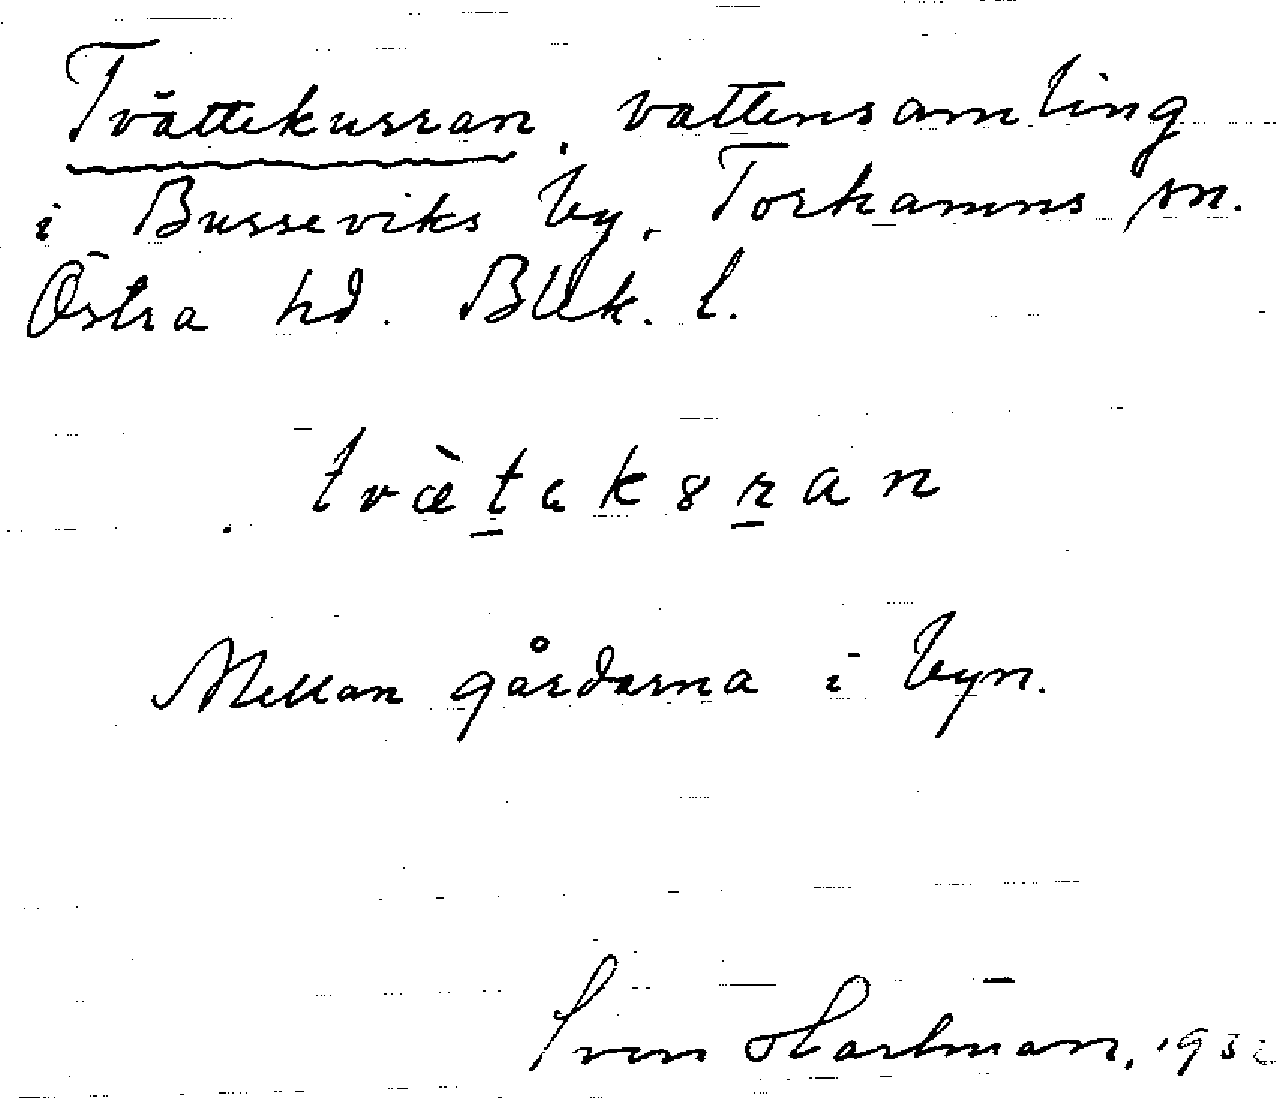 Tvättekurran, vattensamling
i Busseviks by, Torhamns sn.
Östra hd. Blek. l.
tvæ̀t̲ek8r̲an
Mellan gårdarna i byn.
Sven Hartman, 193